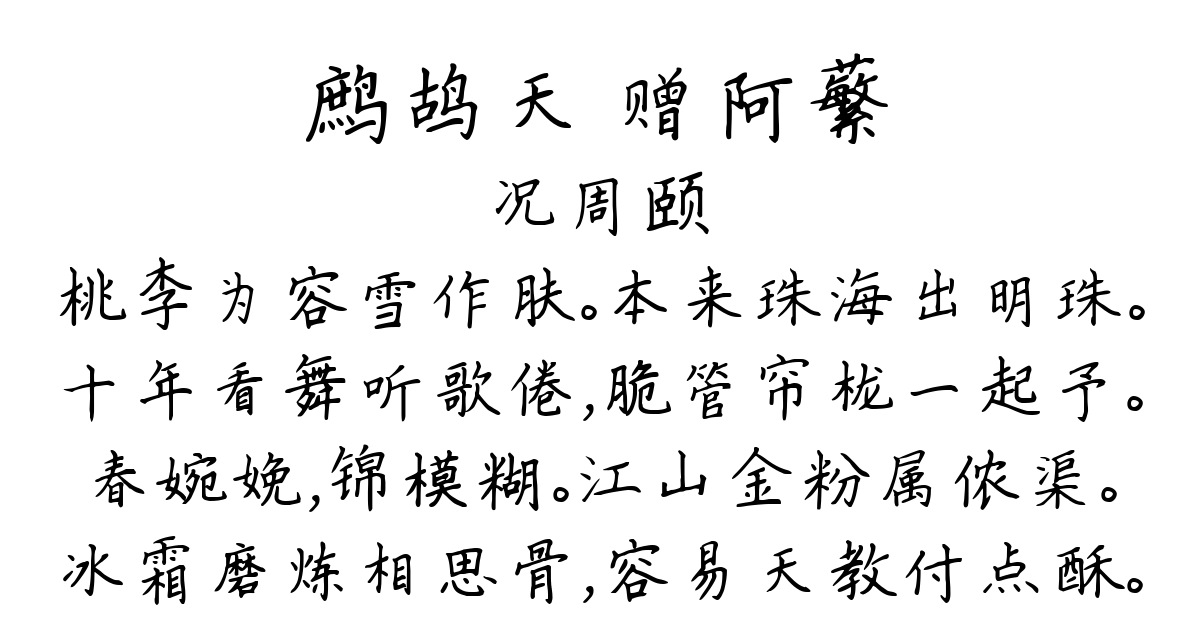 鹧鸪天 赠阿蘩
况周颐
桃李为容雪作肤。本来珠海出明珠。
十年看舞听歌倦,脆管帘栊一起予。
春婉娩,锦模糊。江山金粉属侬渠。
冰霜磨炼相思骨,容易天教付点酥。